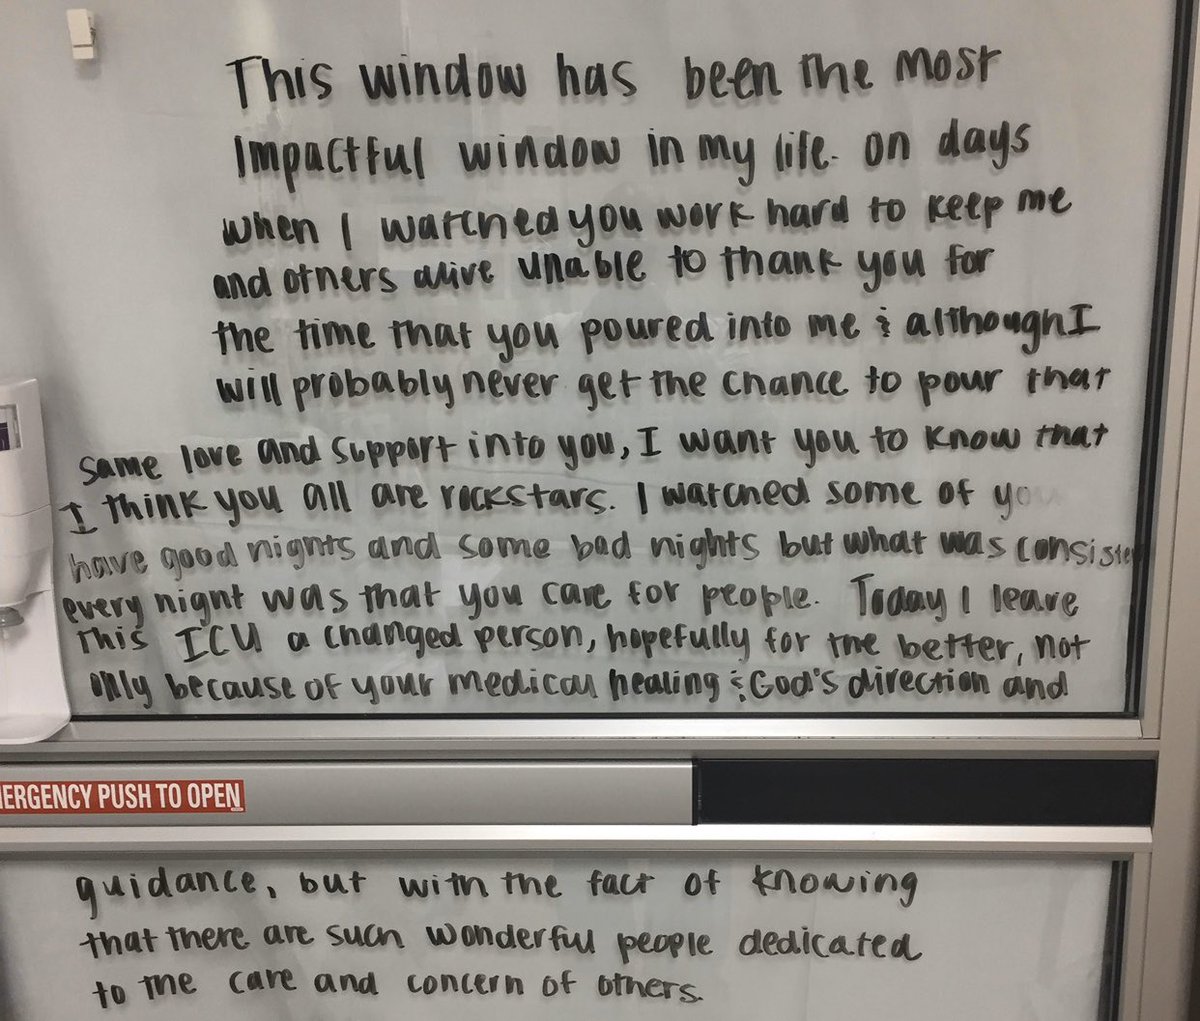 This window has been the most
impactful window in my life. on days
when I watched you work hard to keep me
and others alive unable to thank you for
the time that you poured into me & although I
will probably never get the chance to pour that
same love and support into you, I want you to know that
I think you all are rockstars. I watched some of you
have good nights and some bad nights but what was consisten
every night was that you care for people. Today I leave
this ICU a changed person, hopefully for the better, not
only because of your medical healing & God's direction and
MERGENCY PUSH TO OPEN
guidance, but with the fact of knowing
that there are such wonderful people dedicated
to the care and concern of others.